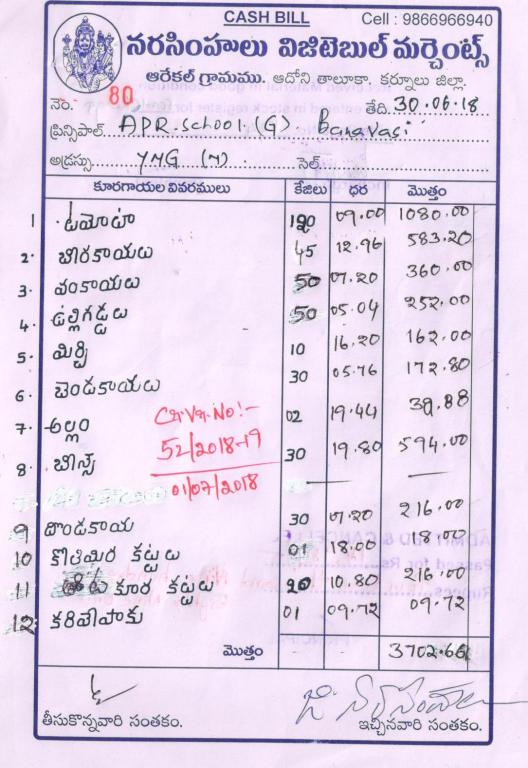 CASH BILL
Cell : 9866966940
నరసింహులు విజిటెబుల్ మర్చెంట్స్
ఆరేకల్ గ్రామము. ఆదోని తాలూకా. కర్నూలు జిల్లా.
నెం. 80 తేది. 30.06.18
ప్రిన్సిపాల్ APR. School. (G). Banavasi
అడ్రస్సు YMG (M). సెల్
కూరగాయల వివరములు కేజీలు ధర మొత్తం
1 టమోటా 120 09.00 1080.00
2. బీరకాయలు 45 12.96 583.20
3. వంకాయలు 50 07.20 360.00
4. ఉల్లిగడ్డలు 50 05.04 252.00
5. మిర్చి 10 16.20 162.00
6. బెండకాయలు 30 05.76 172.80
7. అల్లం 02 19.44 38.88
8. బీన్స్ 30 19.80 594.00
Cr.Vr.No:-
52/2018-19
01/07/2018
9 దొండకాయ 30 07.20 216.00
10 కొతిమిర కట్టలు 01 18.00 18.00
11 కూర కట్టలు 20 10.80 216.00
12 కరివేపాకు 01 09.72 09.72
మొత్తం 3702.66
తీసుకొన్నవారి సంతకం. ఇచ్చినవారి సంతకం.